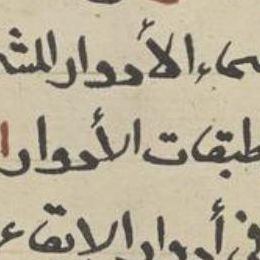 سماء الأدوار المشـ
طبقات الأدوار ا
في أدوار الايقاع